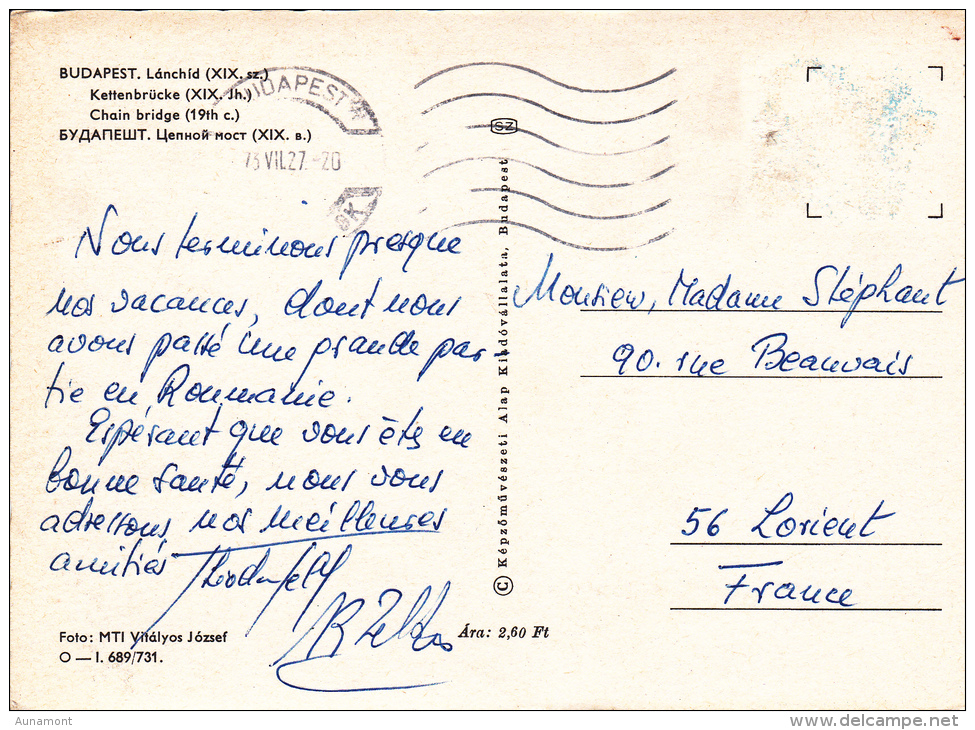 BUDAPEST. Lánchíd (XIX. sz.)
Kettenbrücke (XIX. Jh.)
Chain bridge (19th c.)
БУДАПЕШТ. Цепной мост (XIX. в.)
BUDAPEST
73 VII.27.-20
SZ
Nous terminons presque
nos vacances, dont nous
avons passé une grande par
tie en Roumanie.
Espérant que vous êtes en
bonne santé, nous vous
adressons nos meilleures
amitiés
Képzőművészeti Alap Kiadóvállalata, Budapest
Monsieur, Madame Stéphant
90. rue Beauvais
56 Lorient
France
Foto: MTI Vitályos József
O — I. 689/731.
Ára: 2,60 Ft
Aunamont
delcampe.net